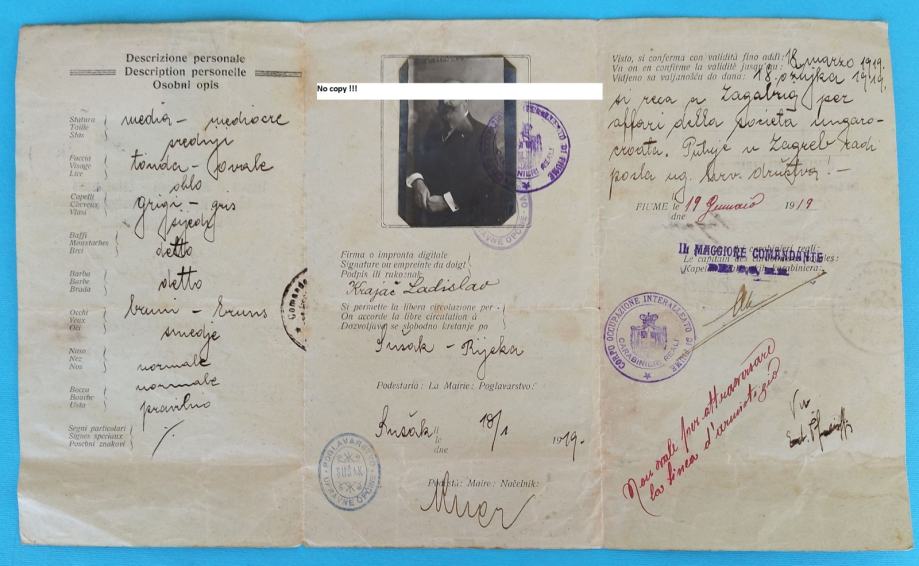 Descrizione personale
Description personelle
Osobni opis
Statura
Taille
Stas
media - mediocre
srednji
Faccia
Visage
Lice
tonda - ovale
oblo
Capelli
Cheveux
Vlasi
grigi - gris
sijedi
Baffi
Moustaches
Brci
detto
Barba
Barbe
Brada
detto
Occhi
Yeux
Oci
bruni - bruns
smedje
Naso
Nez
Nos
normale
Bocca
Bouche
Usta
normale
pravilno
Segni particolari
Signes speciaux
Posebni znakovi
Comando
No copy !!!
Firma o impronta digitale
Signature ou empreinte du doigt
Podpis ili rukoznak
Krajač Ladislav
Si permette la libera circolazione per -
On accorde la libre circulation à
Dozvoljava se slobodno kretanje po
Sušak - Rijeka
Podestaria: La Mairie: Poglavarstvo:
Sušak
li
le
dne
18/1
1919.
Podestà: Maire: Načelnik:
POGLAVARSTVO
SUŠAK
UPRAVNE OPĆINE
Visto, si conferma con validità fino addi: 18 marzo 1919.
Vu on en confirme la validité jusqu'au:
Vidjeno sa valjanošću do dana: 18. ožujka 1919.
si reca a Zagabria per
affari della società ungaro-
croata. Putuje u Zagreb radi
posla ug. hrv. društva! -
FIUME le 19 Gennaio 1919
dne
carabinieri reali:
IL MAGGIORE COMANDANTE
CORPO OCCUPAZIONE INTERALLEATO DI FIUME
CARABINIERI REALI
Non vale per attraversare
la linea d'armistizio
Vu